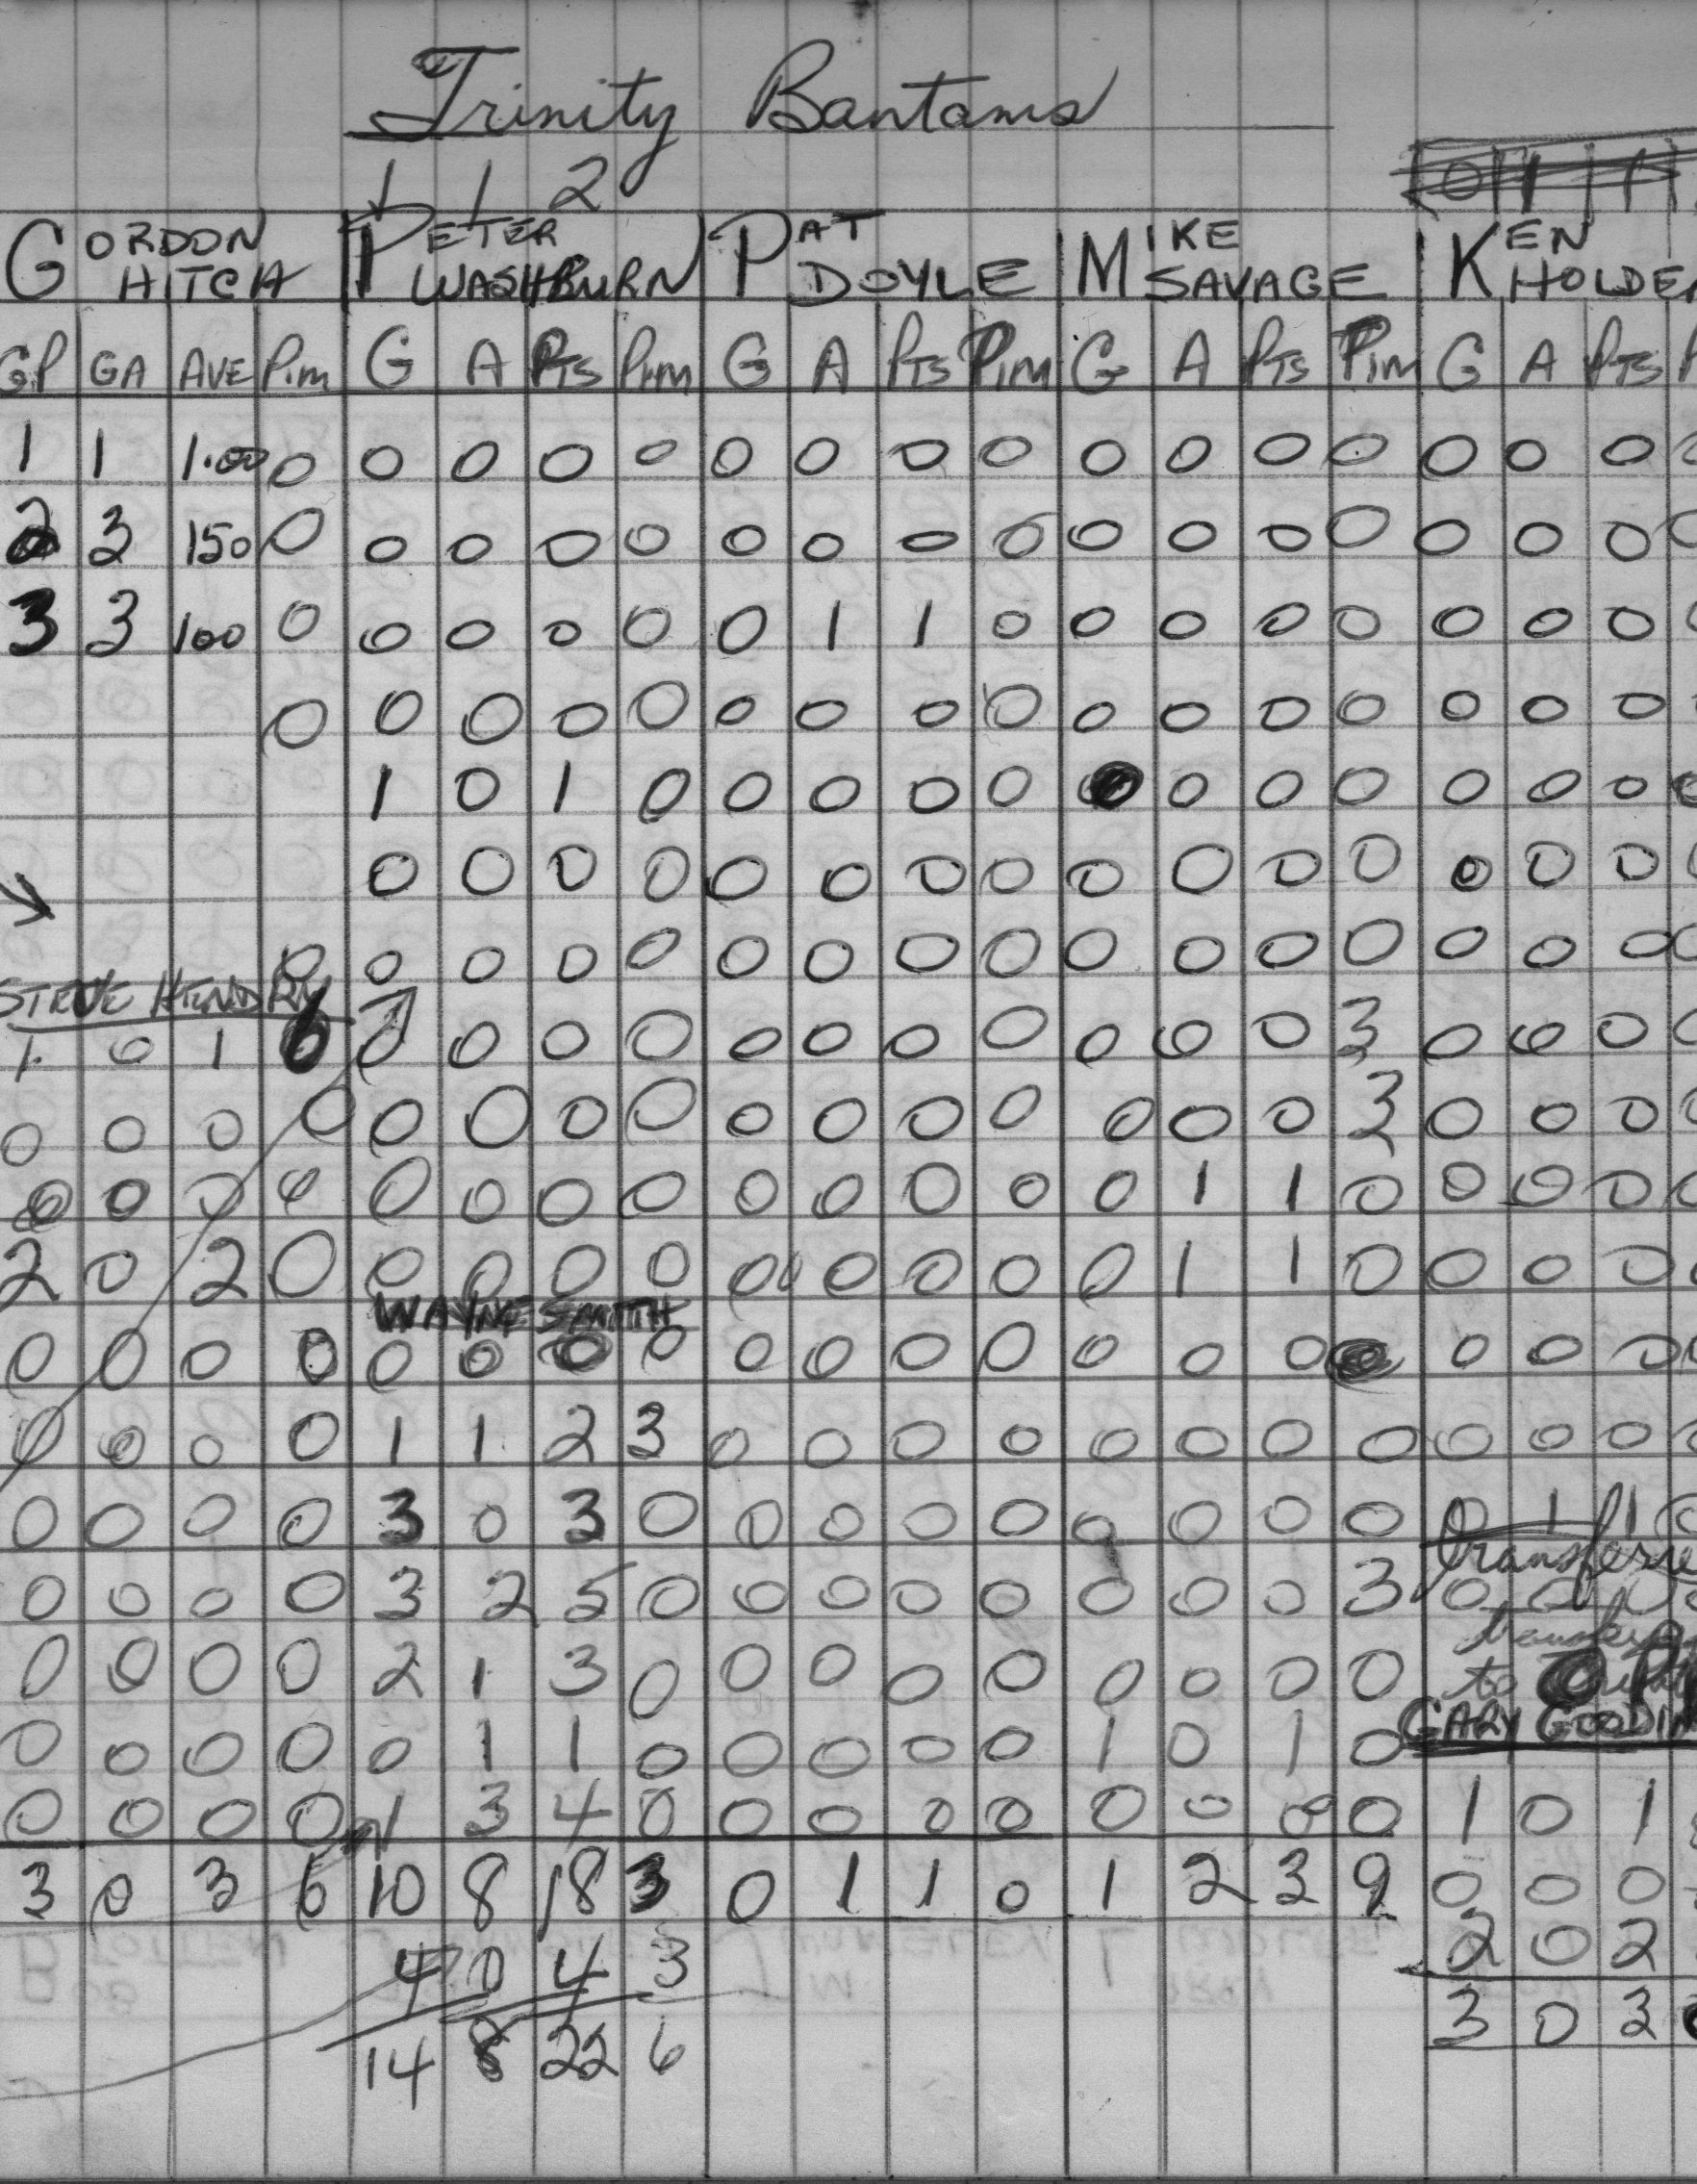 Trinity Bantams
1 1 2
GORDON HITCH PETER WASHBURN PAT DOYLE MIKE SAVAGE KEN HOLDE
GP GA AVE Pim G A Pts Pim G A Pts Pim G A Pts Pim G A Pts P
1 1 1.00 0 0 0 0 0 0 0 0 0 0 0 0 0 0 0 0
2 3 150 0 0 0 0 0 0 0 0 0 0 0 0 0 0 0 0
3 3 100 0 0 0 0 0 0 1 1 0 0 0 0 0 0 0 0
0 0 0 0 0 0 0 0 0 0 0 0 0 0 0 0
1 0 1 0 0 0 0 0 0 0 0 0 0 0 0
0 0 0 0 0 0 0 0 0 0 0 0 0 0 0
0 0 0 0 0 0 0 0 0 0 0 0 0 0 0 0
STEVE HENDRY
1 0 1 6 0 0 0 0 0 0 0 0 0 0 0 3 0 0 0
0 0 0 0 0 0 0 0 0 0 0 0 0 0 0 3 0 0 0
0 0 0 0 0 0 0 0 0 0 0 0 0 1 1 0 0 0 0
2 0 2 0 0 0 0 0 0 0 0 0 0 1 1 0 0 0 0
WAYNE SMITH
0 0 0 0 0 0 0 0 0 0 0 0 0 0 0 0 0 0
0 0 0 0 1 1 2 3 0 0 0 0 0 0 0 0 0 0 0
0 0 0 0 3 0 3 0 0 0 0 0 0 0 0 0 0 1 1
transferre
0 0 0 0 3 2 5 0 0 0 0 0 0 0 0 3 0 0 0
0 0 0 0 2 1 3 0 0 0 0 0 0 0 0 0 to
GARY GOODI
0 0 0 0 0 1 1 0 0 0 0 0 1 0 1 0
0 0 0 0 1 3 4 0 0 0 0 0 0 0 0 0 1 0 1
3 0 3 6 10 8 18 3 0 1 1 0 1 2 3 9 0 0 0
4 0 4 3 2 0 2
14 8 22 6 3 0 3